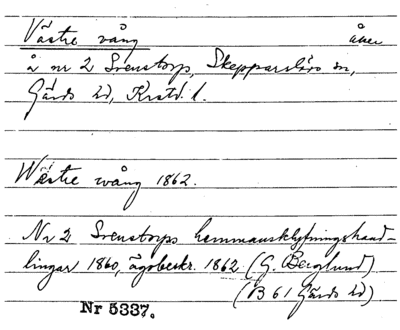 Västre vång åker
å nr 2 Svenstorp, Skepparslövs sn,
Gärds hd, Krstd. l.
Wèstre wång 1862.
No 2 Svenstorps hemmansklyfningshand-
lingar 1860, ägobeskr. 1862 (G. Berglund)
(B 61 Gärds hd)
Nr 5337.